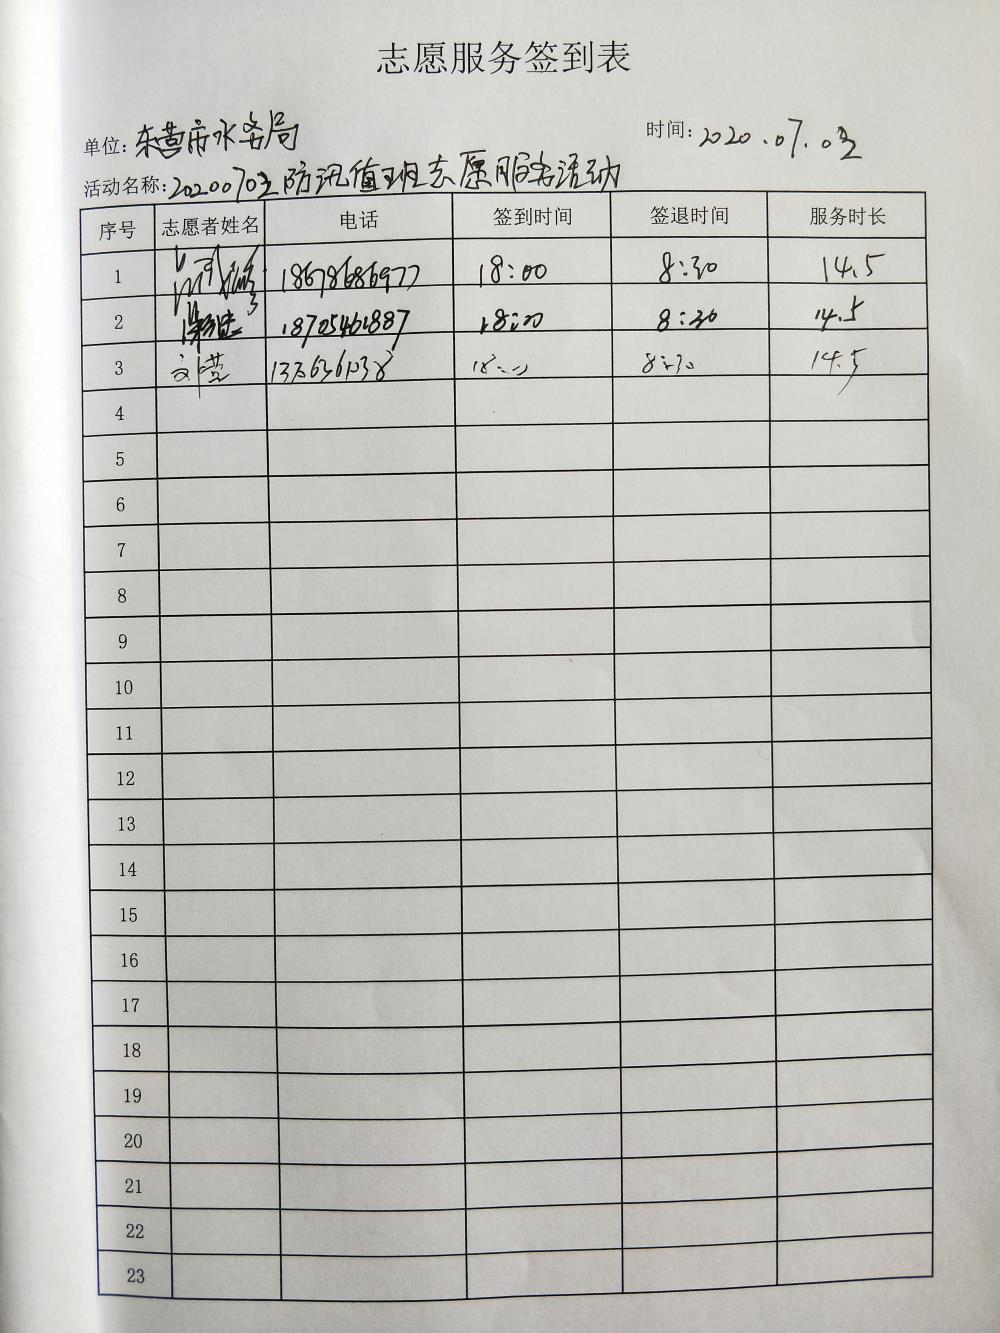 志愿服务签到表
单位：东营市水务局 时间：2020.07.03
活动名称：20200703防汛值班志愿服务活动
序号 志愿者姓名 电话 签到时间 签退时间 服务时长
1 18678686977 18:00 8:30 14.5
2 18705461887 18:00 8:30 14.5
3 18:00 8:30 14.5
4
5
6
7
8
9
10
11
12
13
14
15
16
17
18
19
20
21
22
23